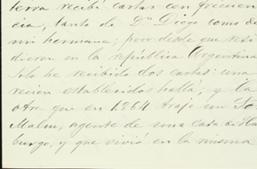 terra recibí cartas con frecuen
cia, tanto de Dn Diego como de
mi hermana; pero desde que resi
dieron en la república Argentina
solo he recibido dos cartas: una
recien establecidos halla, y la
otra que en 1864 trajo un So
Malm, agente de una casa de Ha
burgo, y que vivió en la misma